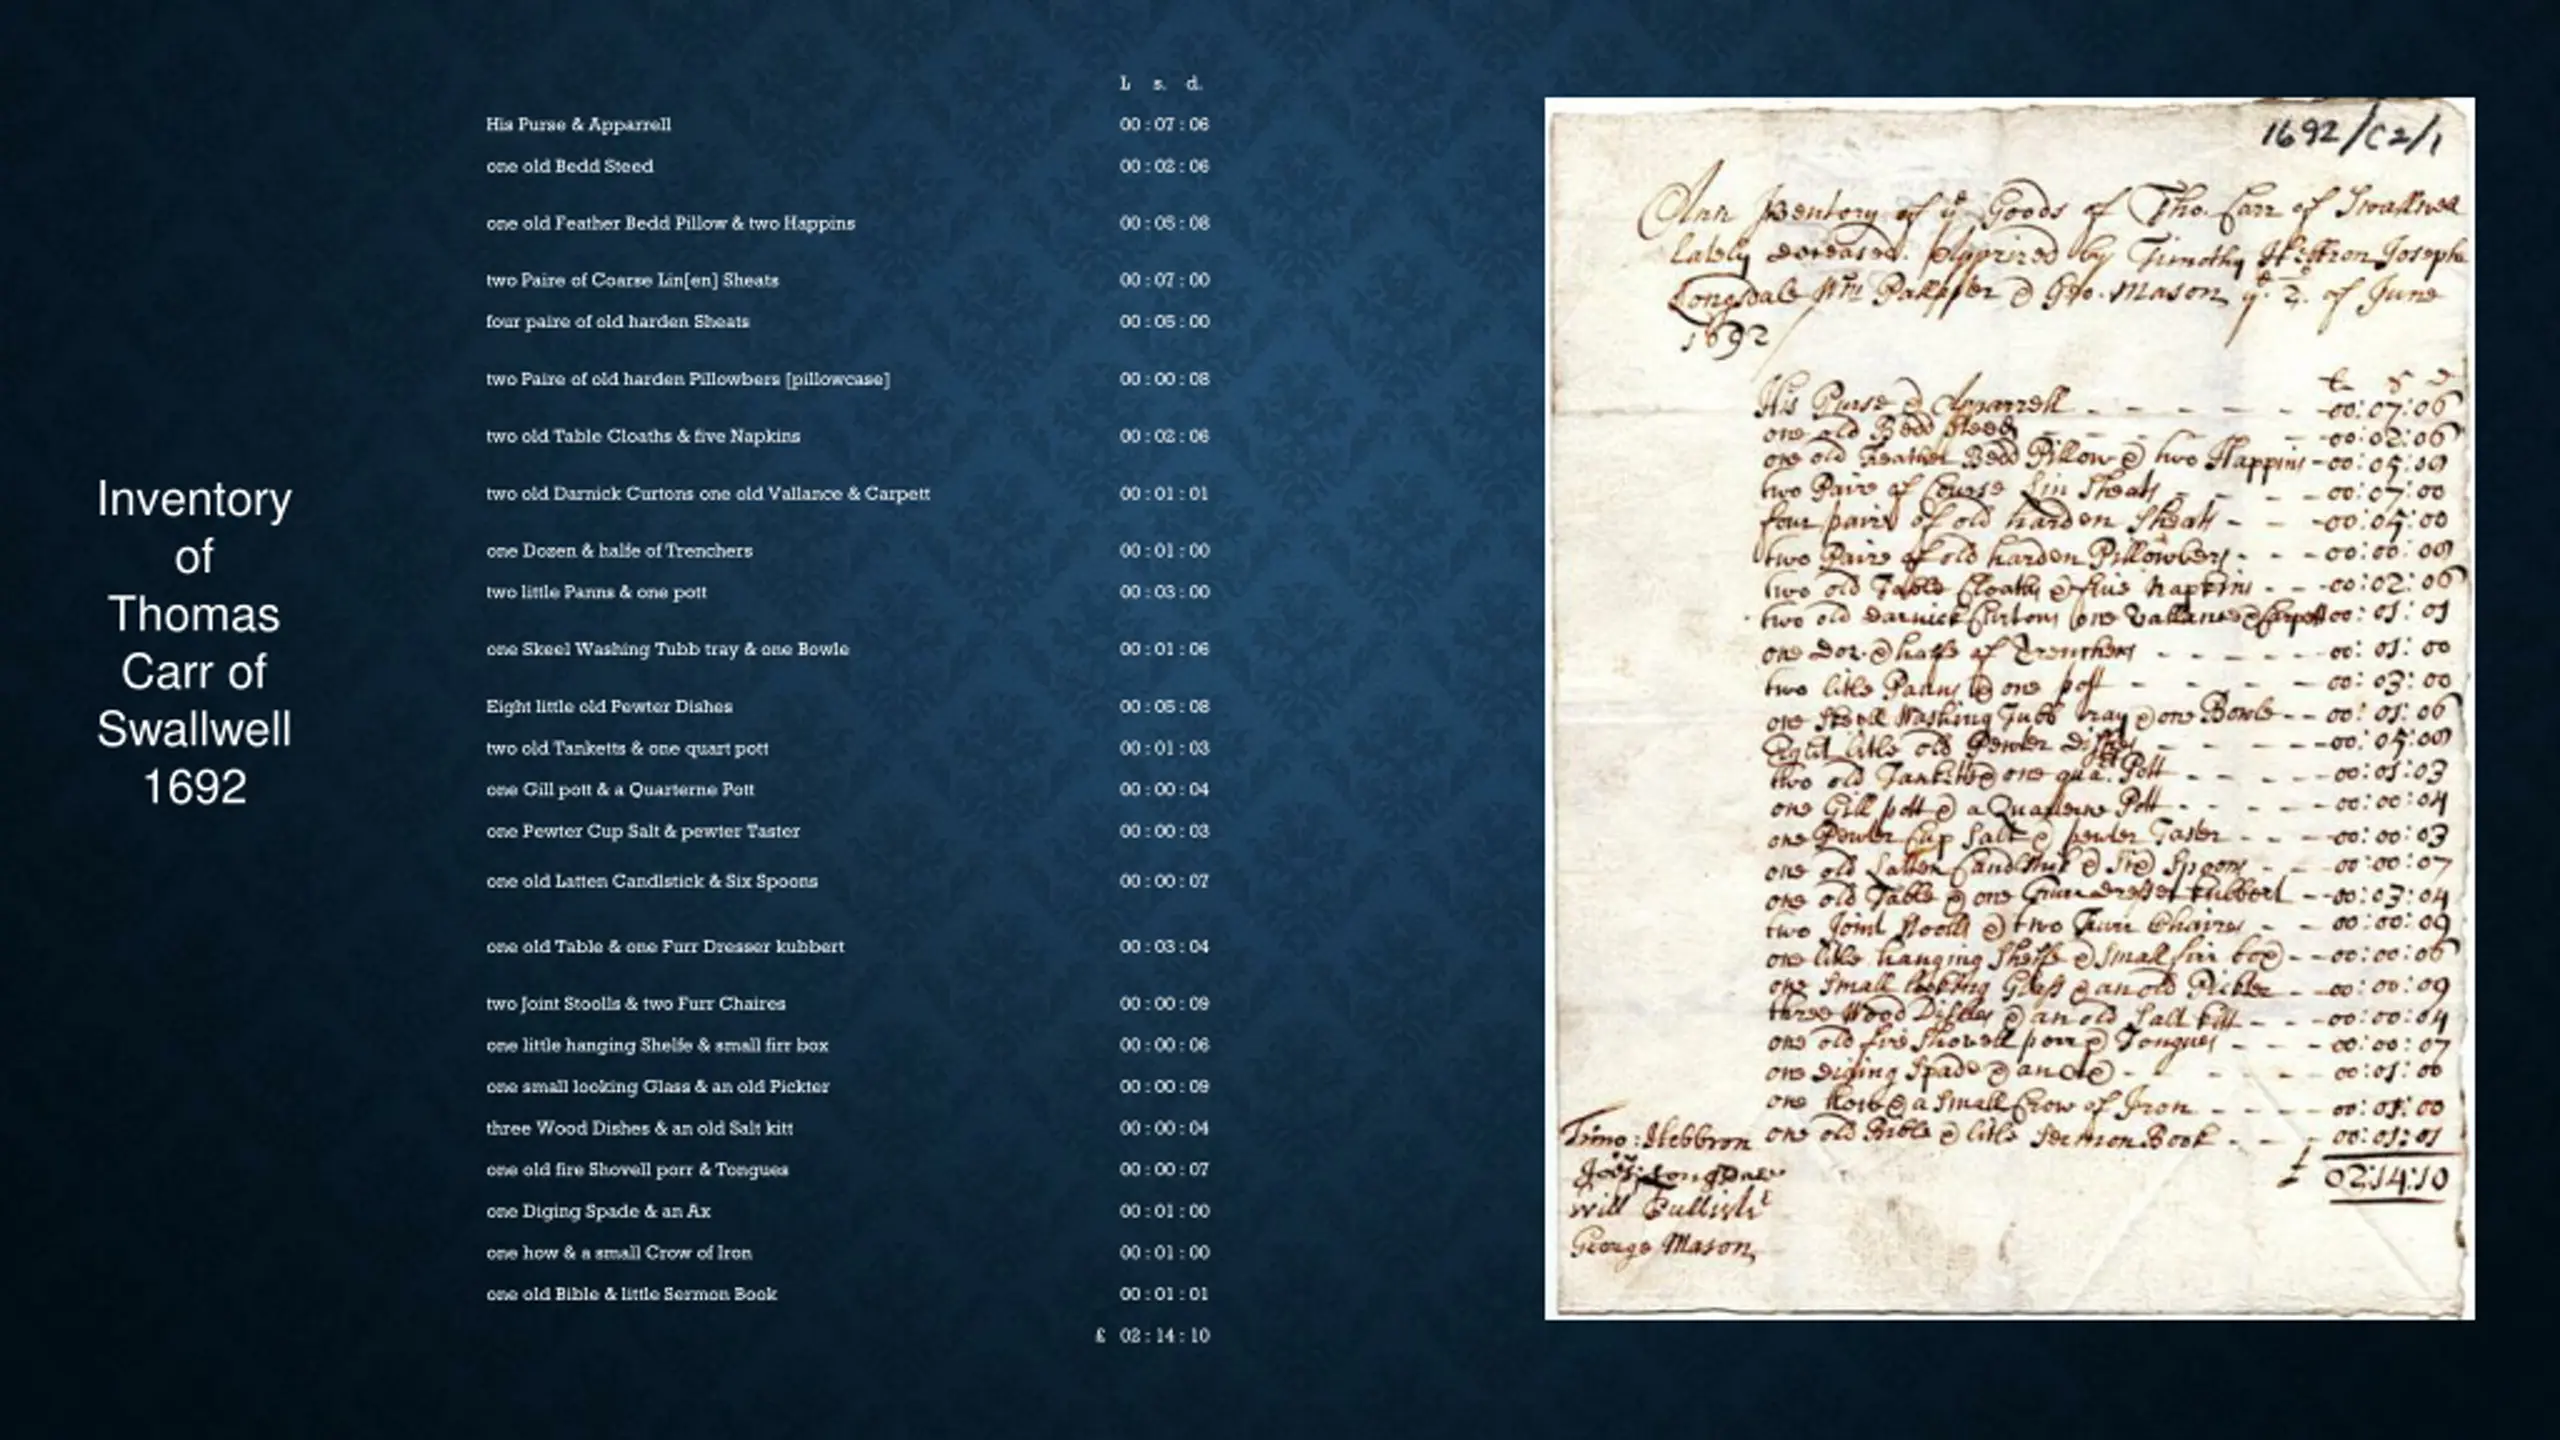 Inventory
of
Thomas
Carr of
Swallwell
1692
L s. d.
His Purse & Apparrell 00 : 07 : 06
one old Bedd Steed 00 : 02 : 06
one old Feather Bedd Pillow & two Happins 00 : 05 : 08
two Paire of Coarse Lin[en] Sheats 00 : 07 : 00
four paire of old harden Sheats 00 : 05 : 00
two Paire of old harden Pillowbers [pillowcase] 00 : 00 : 08
two old Table Cloaths & five Napkins 00 : 02 : 06
two old Darnick Curtons one old Vallance & Carpett 00 : 01 : 01
one Dozen & halfe of Trenchers 00 : 01 : 00
two little Panns & one pott 00 : 03 : 00
one Skeel Washing Tubb tray & one Bowle 00 : 01 : 06
Eight little old Pewter Dishes 00 : 05 : 08
two old Tanketts & one quart pott 00 : 01 : 03
one Gill pott & a Quarterne Pott 00 : 00 : 04
one Pewter Cup Salt & pewter Taster 00 : 00 : 03
one old Latten Candlstick & Six Spoons 00 : 00 : 07
one old Table & one Furr Dresser kubbert 00 : 03 : 04
two Joint Stoolls & two Furr Chaires 00 : 00 : 09
one little hanging Shelfe & small firr box 00 : 00 : 06
one small looking Glass & an old Pickter 00 : 00 : 09
three Wood Dishes & an old Salt kitt 00 : 00 : 04
one old fire Shovell porr & Tongues 00 : 00 : 07
one Diging Spade & an Ax 00 : 01 : 00
one how & a small Crow of Iron 00 : 01 : 00
one old Bible & little Sermon Book 00 : 01 : 01
£ 02 : 14 : 10
1692/C2/1
Ann Inventory of ye Goods of Tho. Carr of Swallwell
lately deceased. Apprized by Timothy Hebbron Joseph
Longsdale Wm & Geo. Mason ye 2 of June
1692
£ s d
His Purse & Aparrell 00:07:06
one old Bedd Steed 00:02:06
one old Feather Bedd Pillow & two Happins 00:05:08
two Paire of Course Lin Sheats 00:07:00
four paire of old harden Sheats 00:05:00
two Paire of old harden Pillowbers 00:00:08
two old Table Cloaths & five Napkins 00:02:06
two old Darnick Curtons one Vallance & Carpett 00:01:01
one doz. & halfe of Trenchers 00:01:00
two litle Panns & one pott 00:03:00
one Skeell Washing Tubb tray & one Bowle 00:01:06
Eight litle old Pewter dishes 00:05:08
two old Tanketts & one quart Pott 00:01:03
one Gill pott & a Quarterne Pott 00:00:04
one Pewter Cup Salt & pewter Taster 00:00:03
one old Latten Candlstick & Six Spoons 00:00:07
one old Table & one Furr dresser kubbert 00:03:04
two Joint Stoolls & two Furr Chaires 00:00:09
one litle hanging Shelfe & small firr box 00:00:06
one small looking Glass & an old Pickter 00:00:09
three Wood Dishes & an old Salt kitt 00:00:04
one old fire Shovell porr & Tongues 00:00:07
one diging Spade & an Ax 00:01:00
one how & a small Crow of Iron 00:01:00
one old Bible & litle Sermon Book 00:01:01
£ 02:14:10
Timo: Hebbron
Jos: Longsdale
Will
George Mason